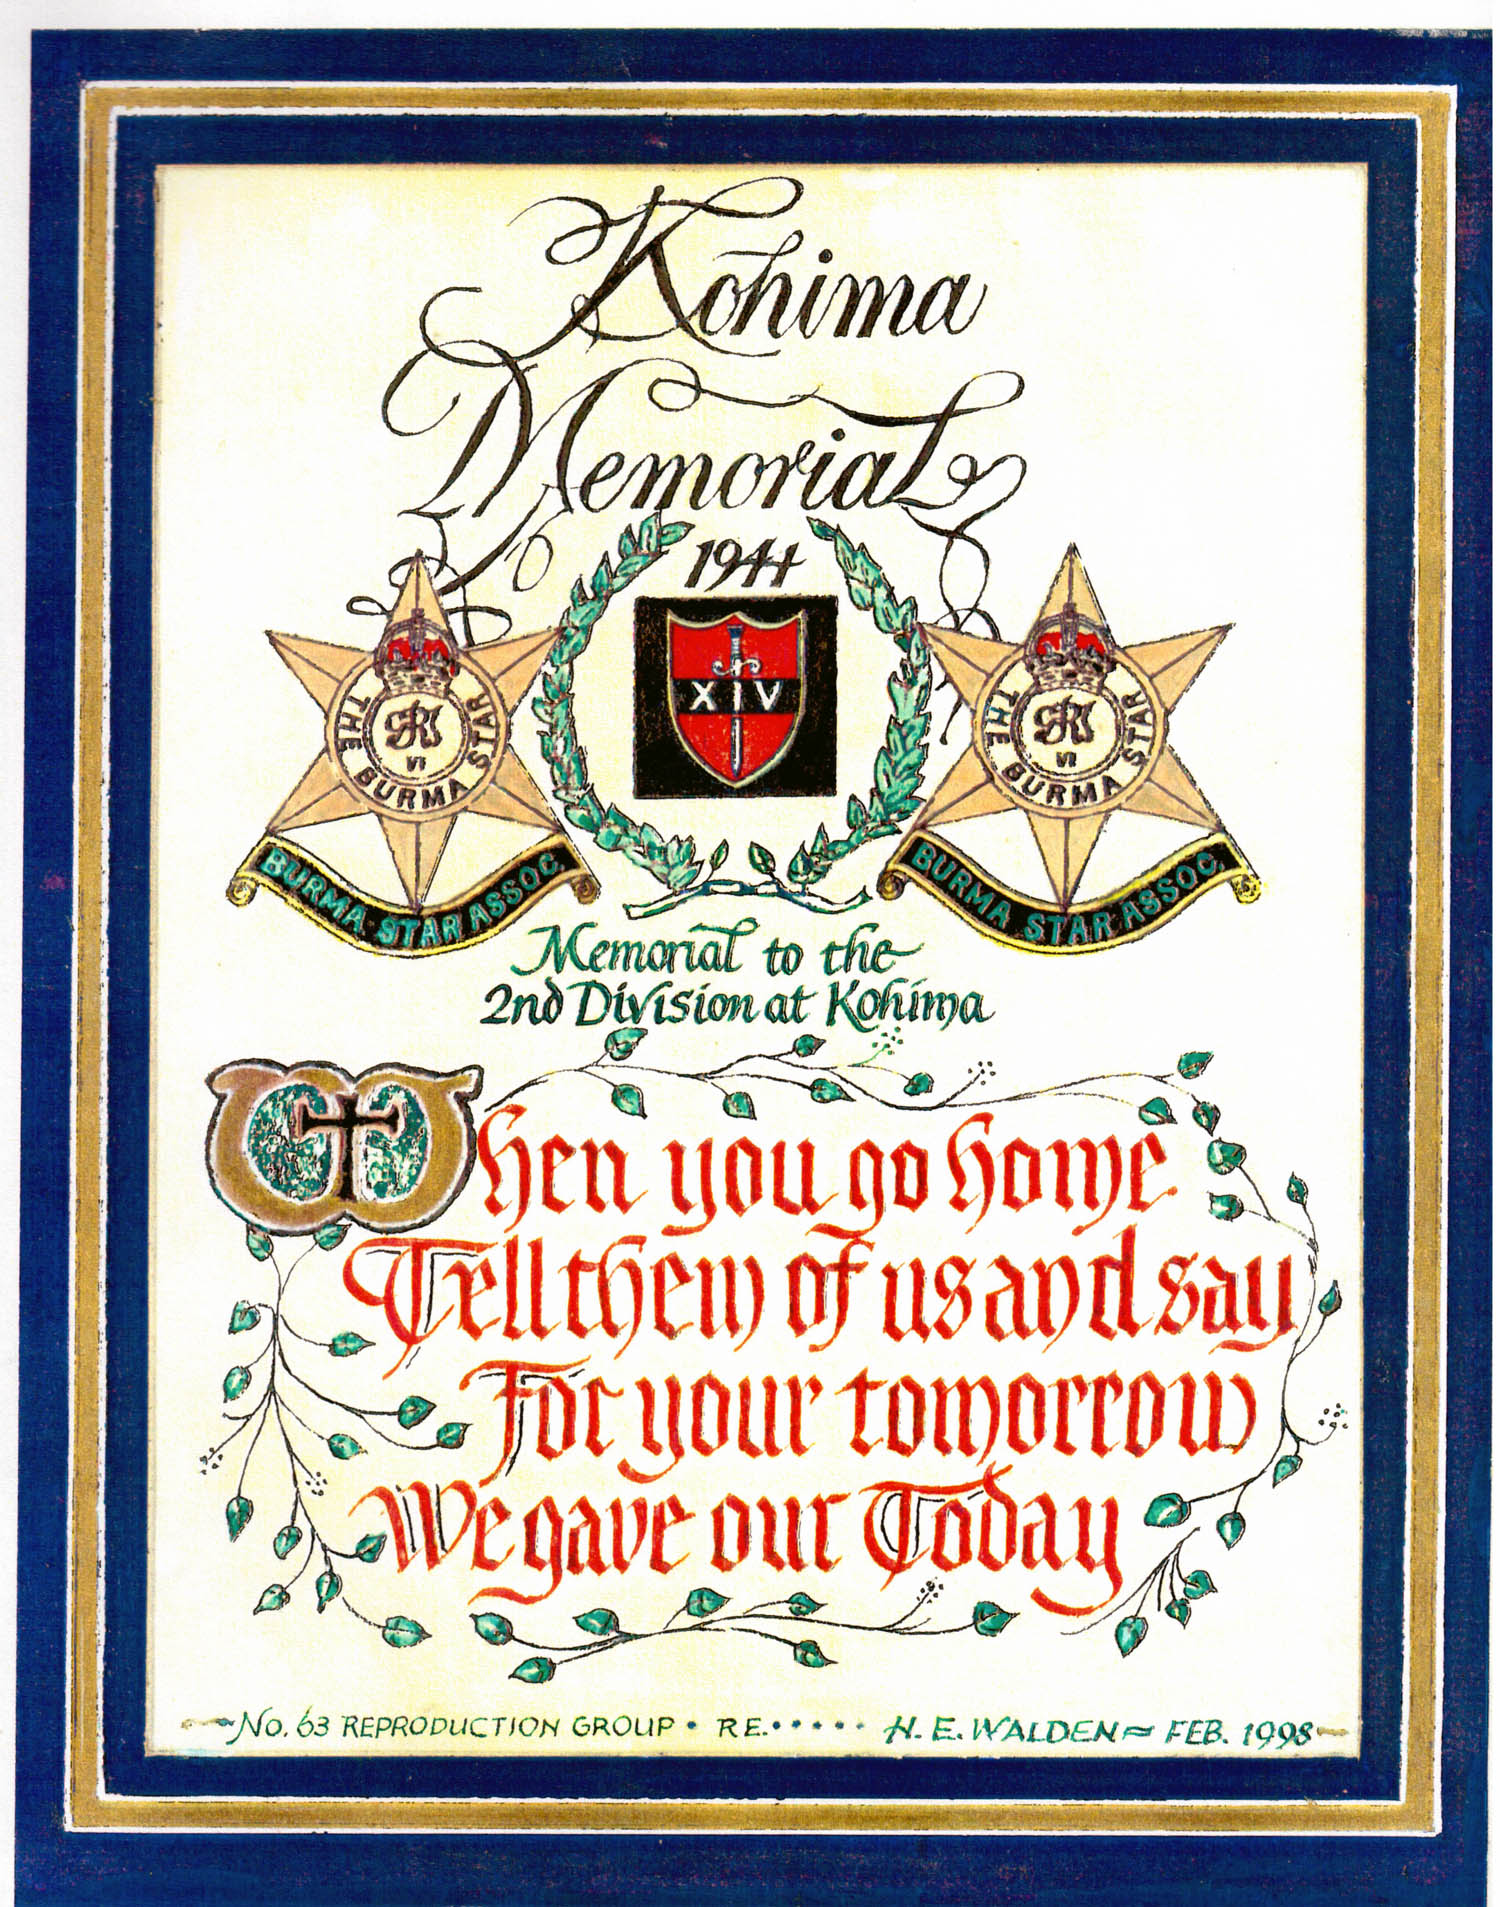 Kohima
Memorial
1944
XIV
THE BURMA STAR
GRI
VI
BURMA STAR ASSOC.
THE BURMA STAR
GRI
VI
BURMA STAR ASSOC.
Memorial to the
2nd Division at Kohima
When you go home
Tell them of us and say
For your tomorrow
We gave our Today
No. 63 REPRODUCTION GROUP • RE. • • • • • H. E. WALDEN = FEB. 1998